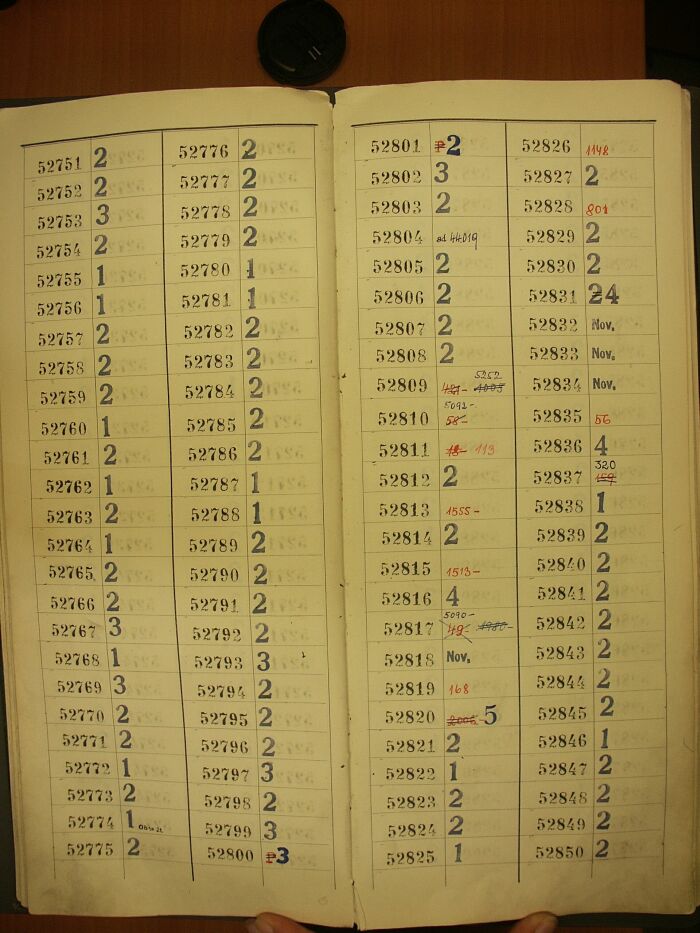 52751 2
52752 2
52753 3
52754 2
52755 1
52756 1
52757 2
52758 2
52759 2
52760 1
52761 2
52762 1
52763 2
52764 1
52765 2
52766 2
52767 3
52768 1
52769 3
52770 2
52771 2
52772 1
52773 2
52774 1
52775 2
52776 2
52777 2
52778 2
52779 2
52780 1
52781 1
52782 2
52783 2
52784 2
52785 2
52786 2
52787 1
52788 1
52789 2
52790 2
52791 2
52792 2
52793 3
52794 2
52795 2
52796 2
52797 3
52798 2
52799 3
52800 3
52801 2
52802 3
52803 2
52804 ad 44019
52805 2
52806 2
52807 2
52808 2
5252
52809 421- 4005
5092-
52810 58-
52811 18- 113
52812 2
52813 1555-
52814 2
52815 1513-
52816 4
5090-
52817 49- 4980-
52818 Nov.
52819 168
52820 2006 5
52821 2
52822 1
52823 2
52824 2
52825 1
52826 1148
52827 2
52828 801
52829 2
52830 2
52831 2 4
52832 Nov.
52833 Nov.
52834 Nov.
52835 56
52836 4
320
52837 159
52838 1
52839 2
52840 2
52841 2
52842 2
52843 2
52844 2
52845 2
52846 1
52847 2
52848 2
52849 2
52850 2